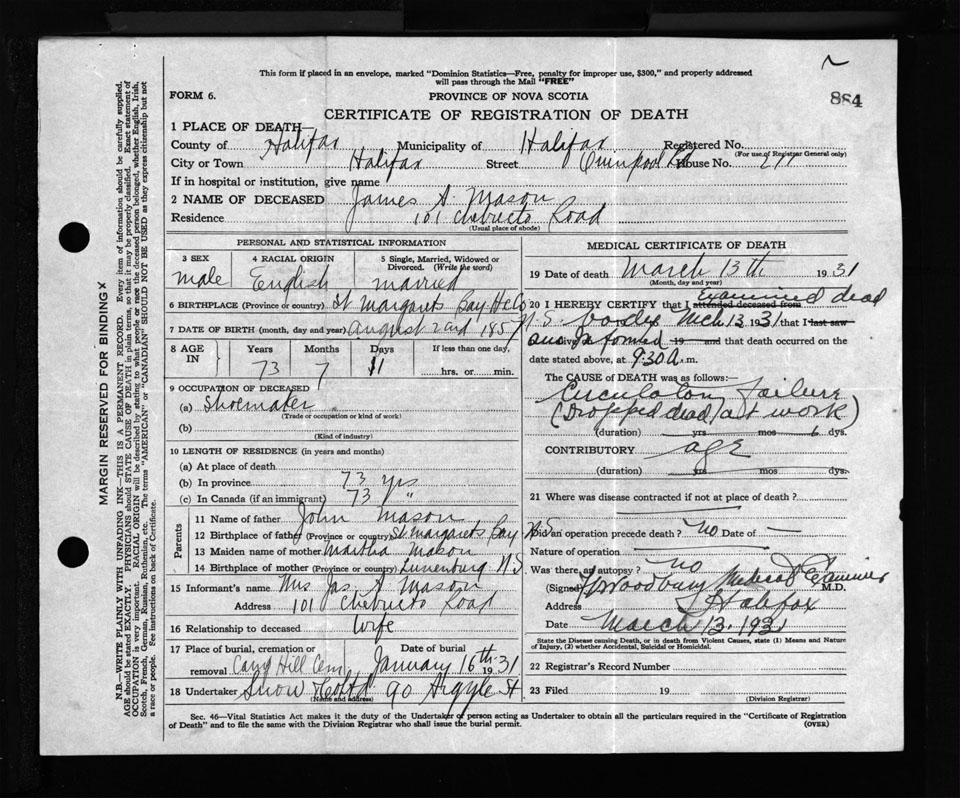 This form if placed in an envelope, marked "Dominion Statistics—Free, penalty for improper use, $300," and properly addressed
will pass through the Mail "FREE"
FORM 6.
PROVINCE OF NOVA SCOTIA
884
CERTIFICATE OF REGISTRATION OF DEATH
1 PLACE OF DEATH—
County of Halifax Municipality of Halifax Registered No.
(For use of Registrar General only)
City or Town Halifax Street Quinpool Rd House No. 277
If in hospital or institution, give name
2 NAME OF DECEASED James A. Mason
Residence 101 Chebucto Road
(Usual place of abode)
PERSONAL AND STATISTICAL INFORMATION
3 SEX 4 RACIAL ORIGIN 5 Single, Married, Widowed or
Divorced. (Write the word)
male English married
6 BIRTHPLACE (Province or country) St Margarets Bay Hx Co N.S.
7 DATE OF BIRTH (month, day and year) August 2nd 1857
8 AGE IN Years Months Days If less than one day,
73 7 11 hrs. or min.
9 OCCUPATION OF DECEASED
(a) Shoemaker
(Trade or occupation or kind of work)
(b)
(Kind of industry)
10 LENGTH OF RESIDENCE (in years and months)
(a) At place of death
(b) In province 73 yrs
(c) In Canada (if an immigrant) 73 "
Parents
11 Name of father John Mason
12 Birthplace of father (Province or country) St Margarets Bay N.S
13 Maiden name of mother Martha Mason
14 Birthplace of mother (Province or country) Lunenburg N.S
15 Informant's name Mrs Jas A Mason
Address 101 Chebucto Road
16 Relationship to deceased Wife
17 Place of burial, cremation or
removal Camp Hill Cem
Date of burial
January 16th 1931
18 Undertaker Snow & Co Ltd 90 Argyle St
(Name and address)
MEDICAL CERTIFICATE OF DEATH
19 Date of death March 13th 1931
(Month, day and year)
20 I HEREBY CERTIFY that I attended deceased from Examined dead
body Mch 13 1931 that I last saw
19 and that death occurred on
date stated above, at 9.30 A.m.
The CAUSE of DEATH was as follows:—
Circulatory Failure
(Dropped dead at work)
(duration) yrs mos dys.
CONTRIBUTORY age
(duration) yrs mos dys.
21 Where was disease contracted if not at place of death?
Did an operation precede death? no Date of —
Nature of operation
Was there an autopsy? no
(Signed) Woodbury Medical Examiner M.D.
Address Halifax
Date March 13, 1931
State the Disease causing Death, or in death from Violent Causes, state (1) Means and Nature
of Injury, (2) whether Accidental, Suicidal or Homicidal.
22 Registrar's Record Number
23 Filed 19
(Division Registrar)
Sec. 46—Vital Statistics Act makes it the duty of the Undertaker or person acting as Undertaker to obtain all the particulars required in the "Certificate of Registration
of Death" and to file the same with the Division Registrar who shall issue the burial permit. (OVER)
MARGIN RESERVED FOR BINDING X
N.B.—WRITE PLAINLY WITH UNFADING INK—THIS IS A PERMANENT RECORD. Every item of information should be carefully supplied.
AGE should be stated EXACTLY. PHYSICIANS should STATE CAUSE OF DEATH in plain terms, so that it may be properly classified. Exact statement of
OCCUPATION is very important. RACIAL ORIGIN will be described by stating to what people or race the deceased person belonged, whether English, Irish,
Scotch, French, German, Russian, Ruthenian, etc. The terms "AMERICAN" or "CANADIAN" SHOULD NOT BE USED as they express citizenship but not
a race or people. See instructions on back of Certificate.